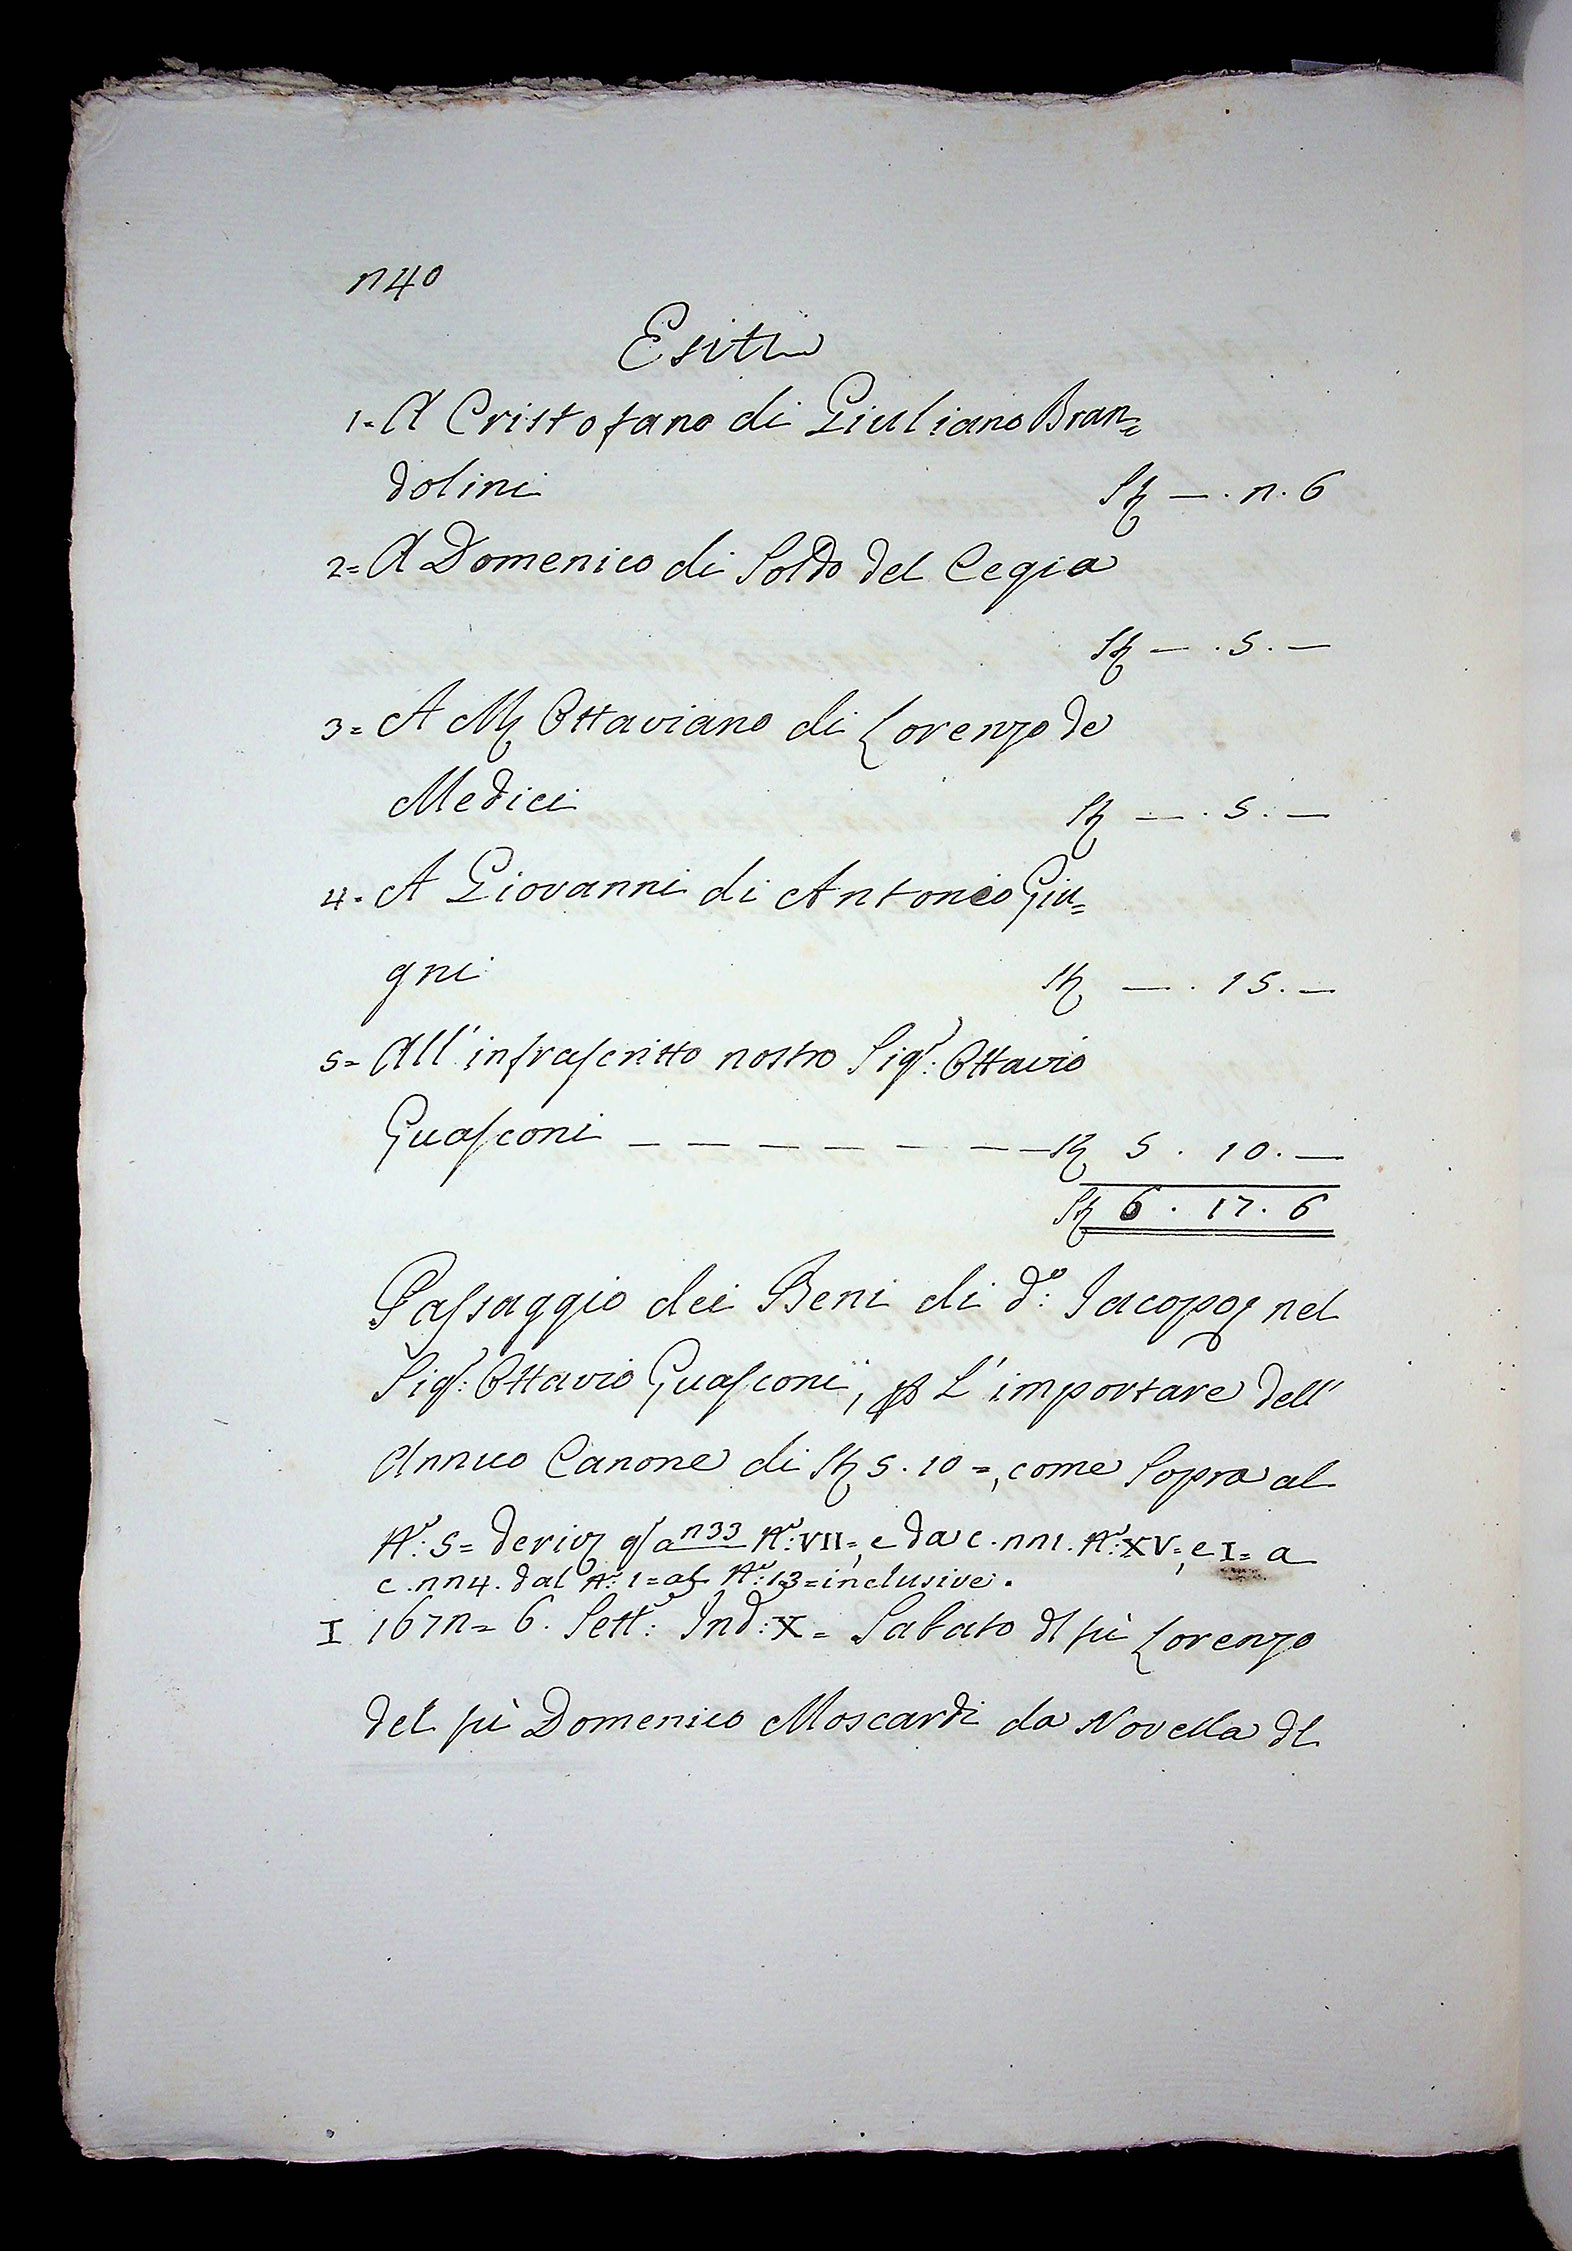 n40
Esiti
1= A Cristofano di Giuliano Bran=
dolini St — . n . 6
2= A Domenico di Soldo del Cegia
St — . 5 . —
3= A M Ottaviano di Lorenzo de
Medici St — . 5 . —
4= A Giovanni di Antonio Giu=
gni St — . 15 . —
5= All'infrascritto nostro Sigr: Ottavio
Guasconi — — — — — — — St 5 . 10 . —
St 6 . 17 . 6
Passaggio dei Beni di do: Jacopo nel
Sigr: Ottavio Guasconi, p L'importare dell'
Annuo Canone di St 5 . 10 =, come Sopra al
No: 5= deriv qs a n33 No: VII=, e da c. nn1. No: XV=, e I= a
c. nn4. dal No: 1= al No: 13= inclusive.
I 167n= 6. Sette: Ind: X= Sabato dl fù Lorenzo
del fù Domenico Moscardi da Novella dl